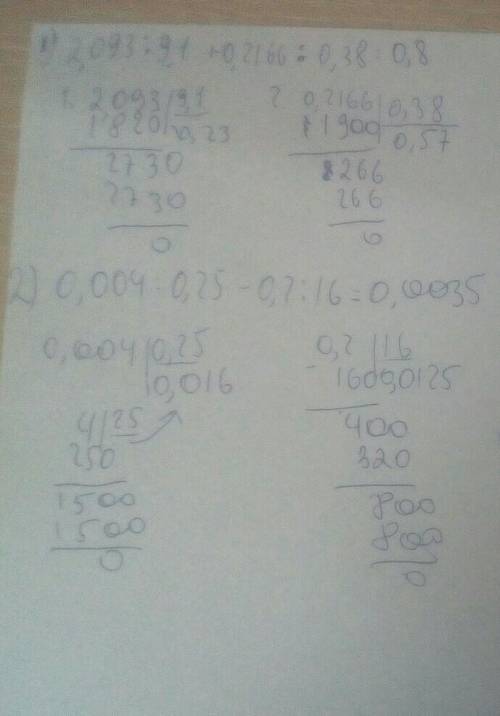 1) 2,093 : 9,1 + 0,2166 : 0,38 = 0,8
1. 2093 | 9,1
1820 | 0,23
2730
2730
0
2. 0,2166 | 0,38
1900 | 0,57
266
266
0
2) 0,004 : 0,25 - 0,2 : 16 = 0,0035
0,004 | 0,25
0,016
4 | 25
250
1500
1500
0
0,2 | 16
- 160 0,0125
400
320
800
800
0